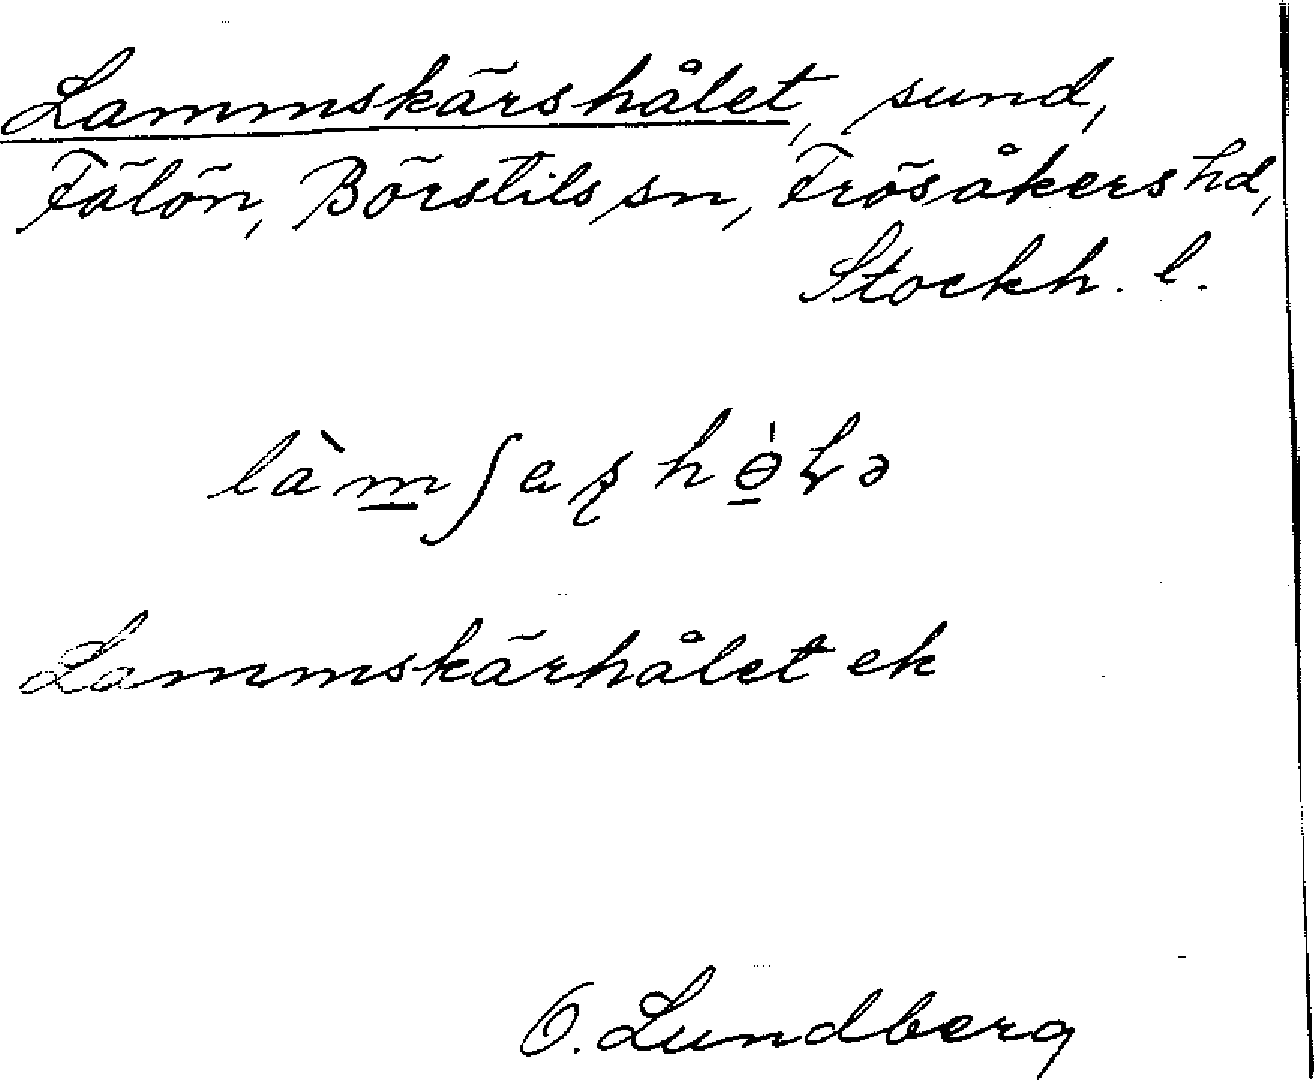 Lammskärshålet, sund,
Fälön, Börstils sn, Frösåkers hd,
Stockh. l.
Lammskärhålet ek
O. Lundberg